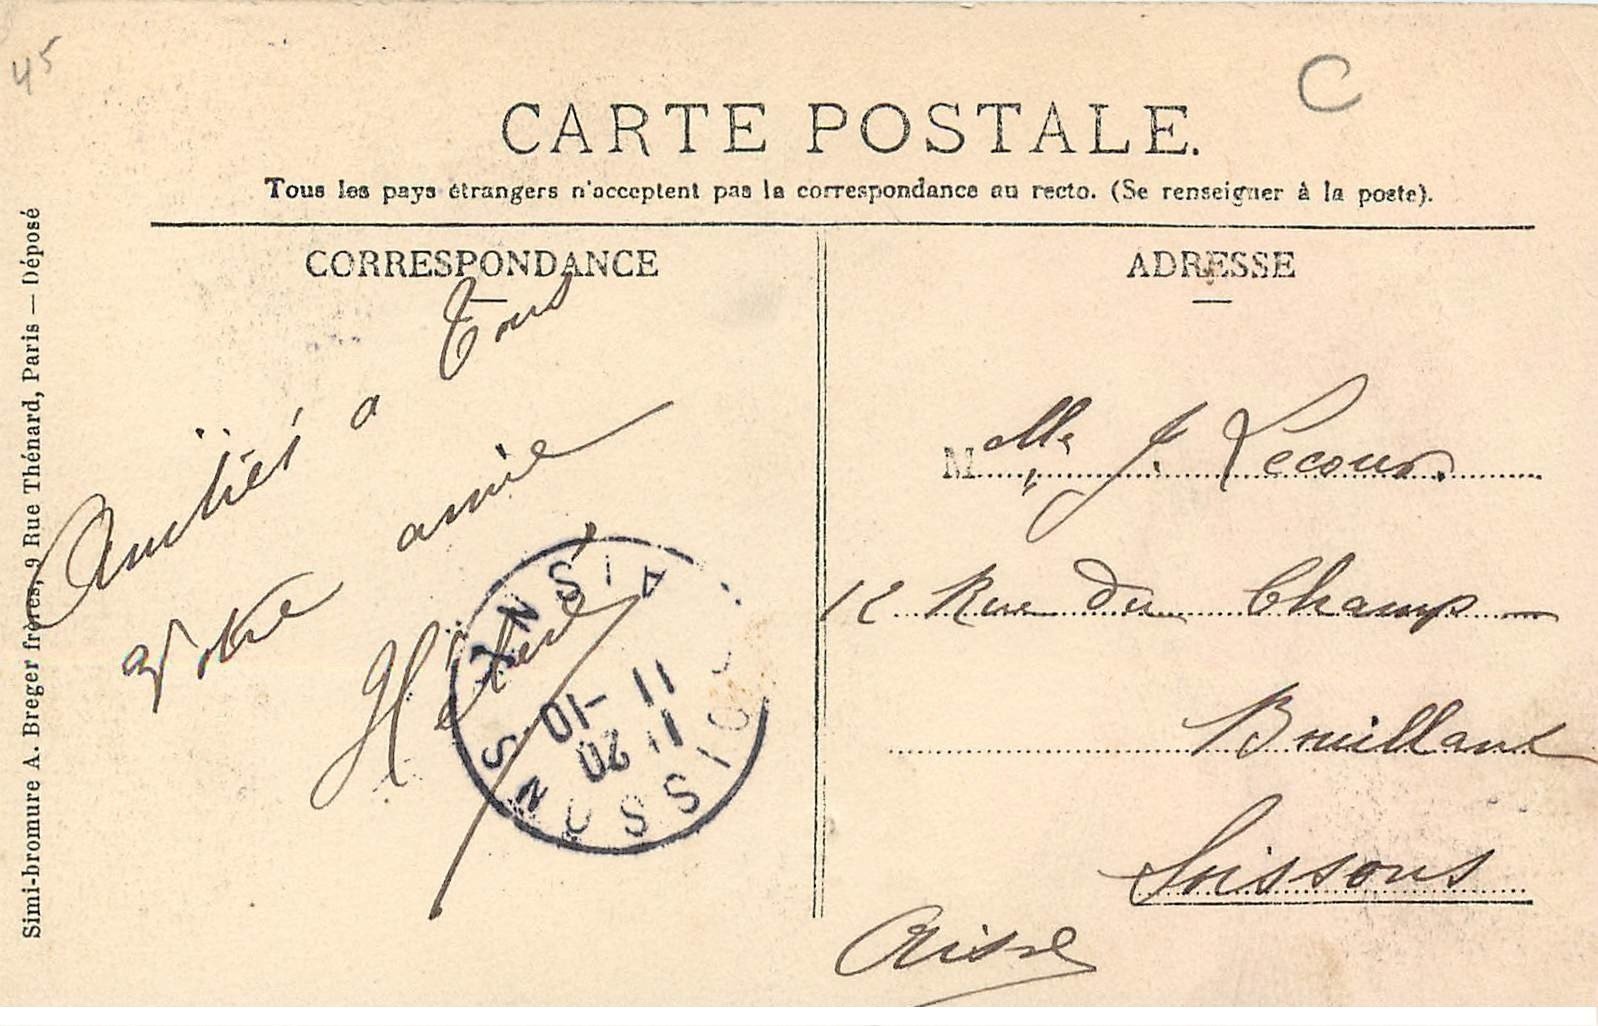 45
C
CARTE POSTALE.
Tous les pays étrangers n'acceptent pas la correspondance au recto. (Se renseigner à la poste).
CORRESPONDANCE
Amitiés a Tous
Votre amie
Hélène
ADRESSE
Melle J. Lecour
12 Rue du Champ
Bouillant
Soissons
Aisne
SOISSONS
AISNE
11-10
11 20
Simi-bromure A. Breger frères, 9 Rue Thénard, Paris — Déposé